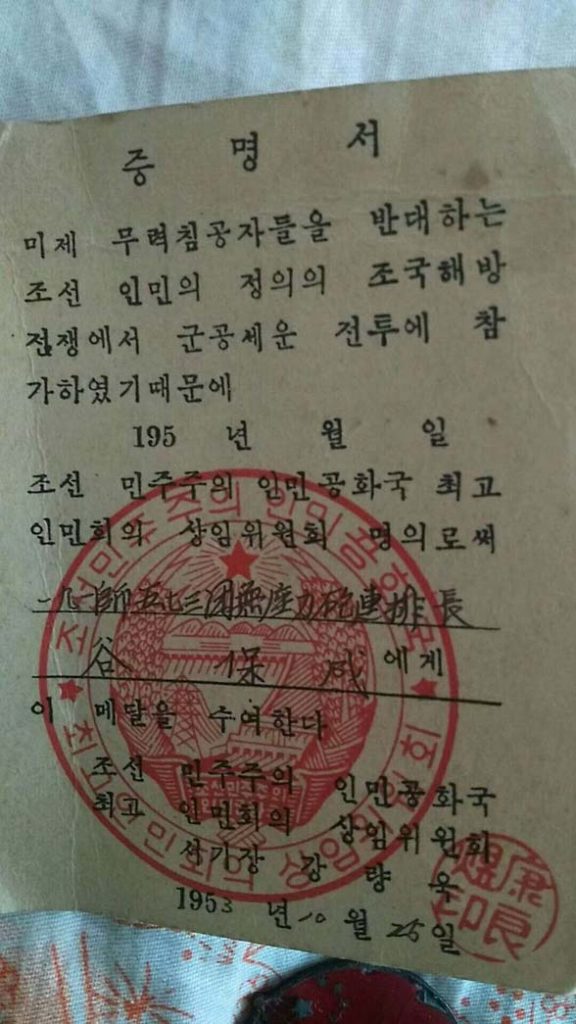 증 명 서
미제 무력침공자들을 반대하는
조선 인민의 정의의 조국해방
전쟁에서 군공세운 전투에 참
가하였기때문에
195 년 월 일
조선 민주주의 인민공화국 최고
인민회의 상임위원회 명의로써
師五七三团無座力砲連排長
谷 保 成 에게
이 메달을 수여한다
조선 민주주의 인민공화국
최고 인민회의 상임위원회
서기장 강 량 욱
1953 년 10 월 25 일
조선민주주의인민공화국
최고인민회의 상임위원회